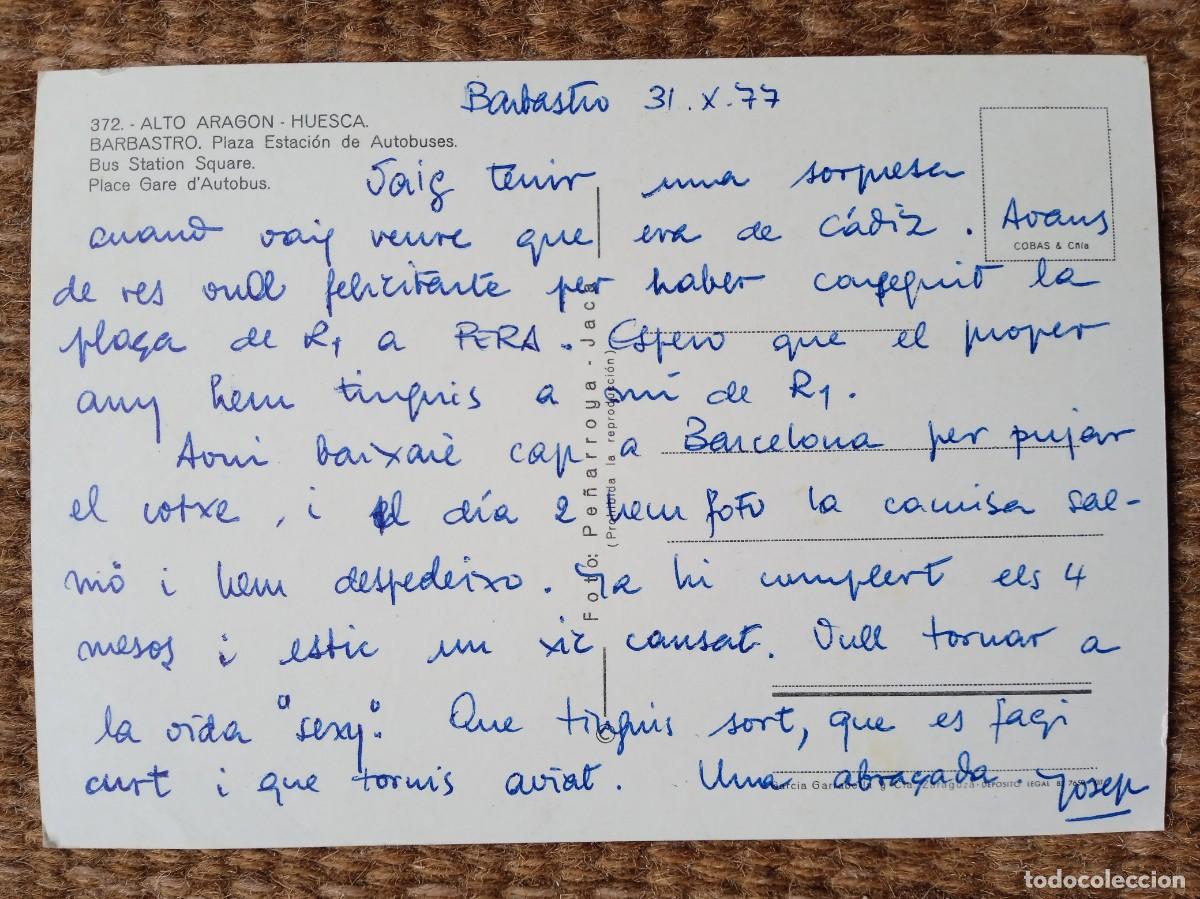 Barbastro 31.X.77
372. - ALTO ARAGON - HUESCA.
BARBASTRO. Plaza Estación de Autobuses.
Bus Station Square.
Place Gare d'Autobus.
COBAS & Cnía
Vaig tenir una sorpresa
cuand vaig veure que era de Cádiz. Avans
de res vull felicitarte per haber conseguit la
plaça de R1 a PERA. Espero que el proper
any hem tinguis a mi de R1.
Avui baixaré cap a Barcelona per pujar
el cotxe, i el día 2 hem foto la camisa sal-
mó i hem despedeixo. Ja hi complert els 4
mesos i estic un xic cansat. Vull tornar a
la vida "sexy". Que tinguis sort, que es fagi
curt i que tornis aviat. Una abraçada. Josep
Foto: Peñarroya - Jaca
(Prohibida la reproducción)
©
García Garrabella y Cía. Zaragoza - DEPOSITO LEGAL B.
todocoleccion